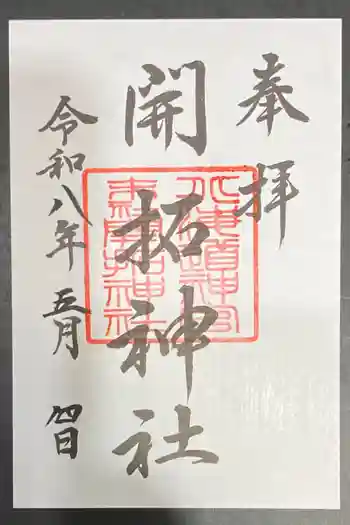 奉拝
開拓神社
北海道神宮
末社開拓神社
令和八年五月四日